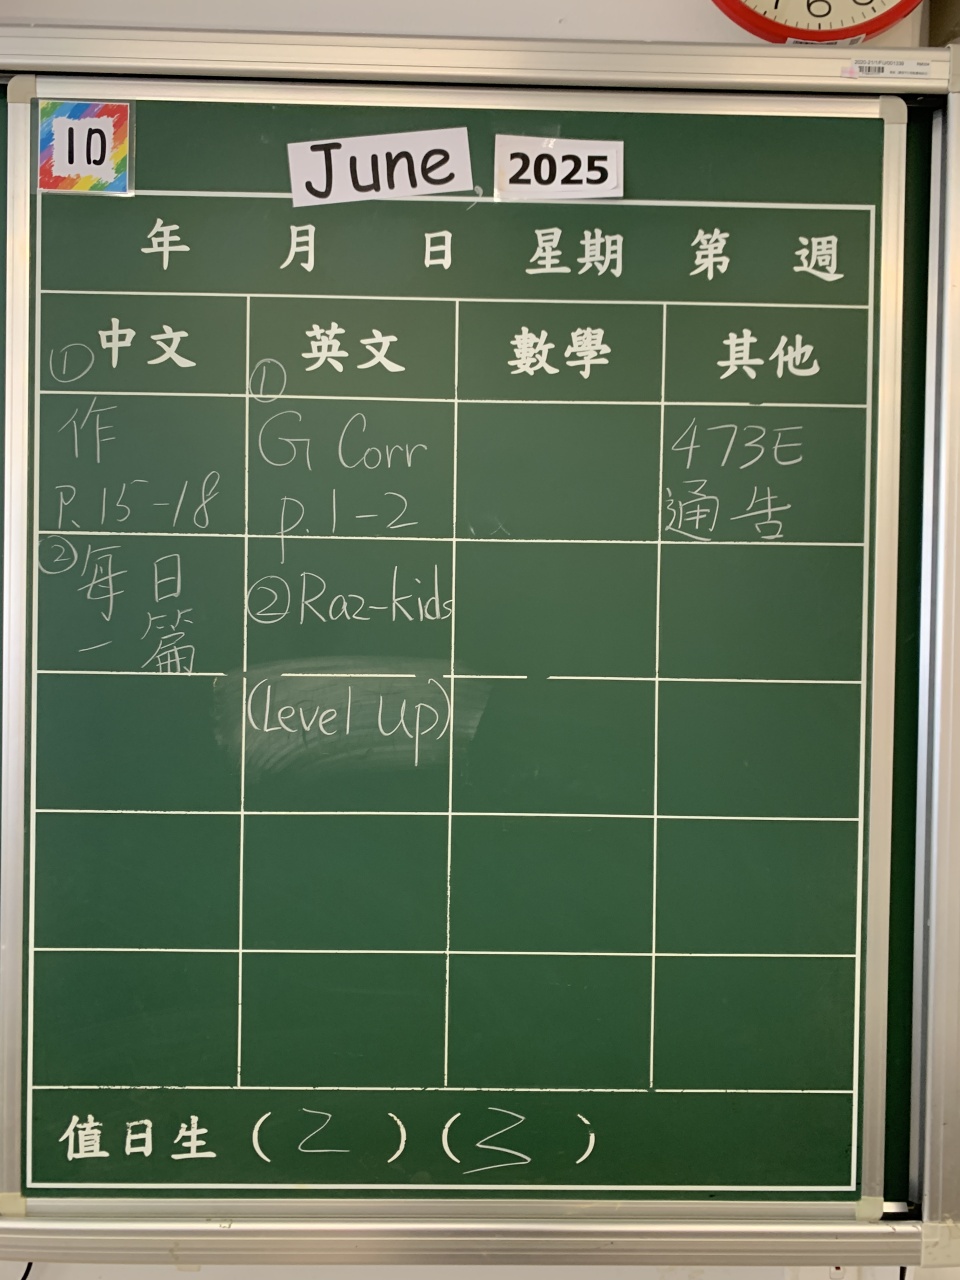 1D
June, 2025
年 月 日 星期 第 週
中文 英文 數學 其他
① 作
P.15-18
② 每日
一篇
① G Corr
p.1-2
② Raz-kids
(Level Up)
473E
通告
值日生 ( 2 ) ( 3 )